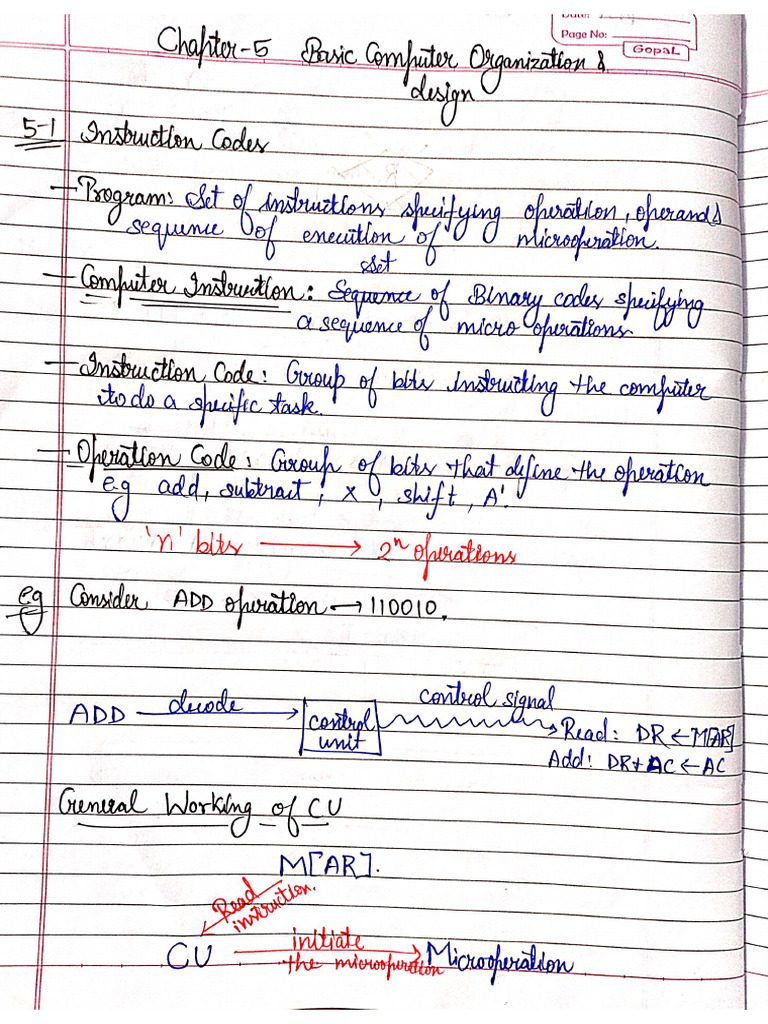 Date:
Page No:
GopaL
Chapter-5 Basic Computer Organization &
design
5-1 Instruction Codes
— Program: Set of instructions specifying operation, operand &
sequence of execution of microoperation.
Set
— Computer Instruction: Sequence of Binary codes specifying
a sequence of micro operations
— Instruction Code: Group of bits instructing the computer
to do a specific task.
— Operation Code: Group of bits that define the operation
e.g add, subtract, x, shift, A'.
'n' bits → 2ⁿ operations
eg Consider ADD operation → 110010.
control signal
ADD decode → control unit
Read: DR ← M[AR]
Add: DR + AC ← AC
General Working of CU
M[AR].
Read
instruction.
CU initiate → Microoperation
the microoperation